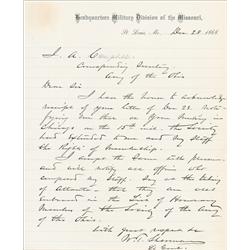 Headquarters Military Division of the Missouri,
St. Louis, Mo. Dec. 28 1868
J. A. Campbell
Corresponding Secretary
Army of the Ohio
Dear Sir
I have the honor to acknowledge
receipt of your letter of Dec. 23.
me that at your meeting in
Chicago on the 15th inst. the Society
had extended to me and my Staff
the rights of membership.
I accept the same with pleasure
and will notify all officers who
composed my Staff, say at the taking
of Atlanta that they are also
embraced in the List of Honorary
Members of the Society of the Army
of the Ohio.
With great respect &c
W. T. Sherman